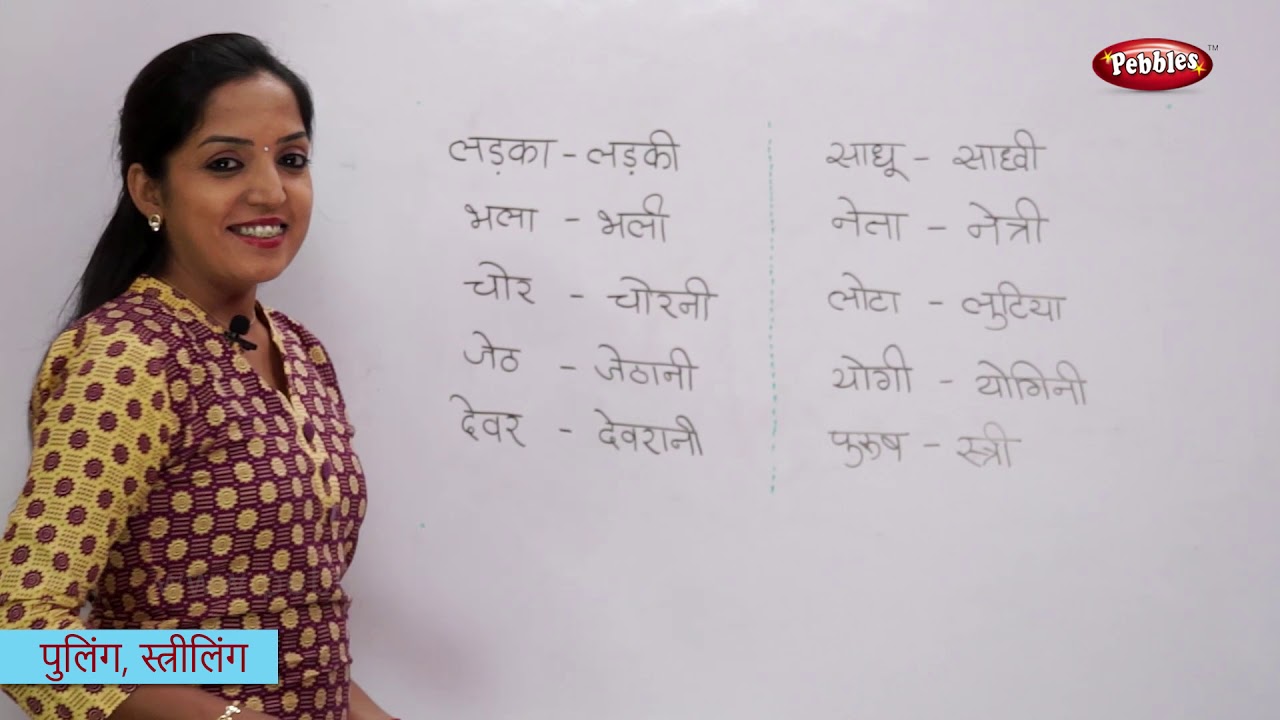 Pebbles™
लड़का - लड़की
भला - भली
चोर - चोरनी
जेठ - जेठानी
देवर - देवरानी
साधू - साध्वी
नेता - नेत्री
लोटा - लुटिया
योगी - योगिनी
पुरूष - स्त्री
पुलिंग, स्त्रीलिंग